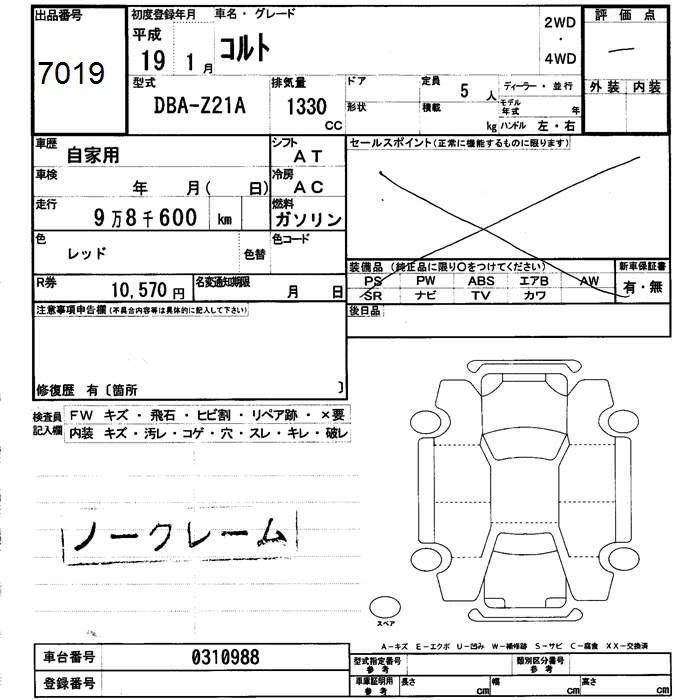 出品番号
7019
初度登録年月
平成
19 1月
車名・グレード
コルト
2WD
・
4WD
評価点
一
外装 内装
型式
DBA-Z21A
排気量
1330
CC
ドア
形状
定員
5 人
積載
kg
ディーラー・並行
モデル年式 年
ハンドル 左・右
車歴
自家用
シフト
AT
車検
年 月( 日)
冷房
AC
走行
9万8千600 km
燃料
ガソリン
色
レッド
色替
色コード
R券
10,570円
名変通知期限
月 日
セールスポイント(正常に機能するものに限ります)
装備品(純正品に限り〇をつけてください)
PS PW ABS エアB AW
SR ナビ TV カワ
新車保証書
有・無
後日品
注意事項申告欄(不具合内容等は具体的に記入して下さい)
修復歴 有〔箇所 〕
検査員
記入欄
FW キズ・飛石・ヒビ割・リペア跡・×要
内装 キズ・汚レ・コゲ・穴・スレ・キレ・破レ
ノークレーム
スペア
A-キズ E-エクボ U-凹み W-補修跡 S-サビ C-腐食 XX-交換済
車台番号
0310988
登録番号
型式指定番号
参考
類別区分番号
参考
車庫証明用
参考
長さ cm
幅 cm
高さ cm